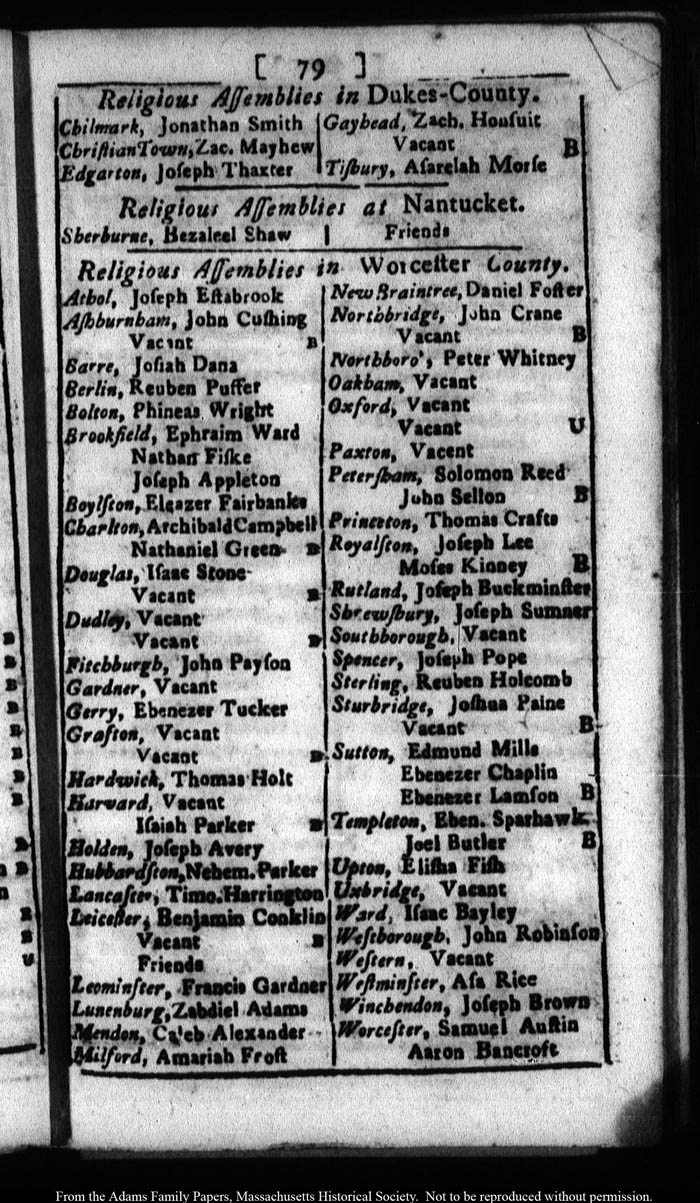 [ 79 ]
Religious Aſſemblies in Dukes-County.
Chilmark, Jonathan Smith
Chriſtian Town, Zac. Mayhew
Edgarton, Joſeph Thaxter
Gayhead, Zach. Honſuit
Vacant B
Tiſbury, Aſarelah Morſe
Religious Aſſemblies at Nantucket.
Sherburne, Bezaleel Shaw
Friends
Religious Aſſemblies in Worceſter County.
Athol, Joſeph Eſtabrook
Aſhburnham, John Cuſhing
Vacant B
Barre, Joſiah Dana
Berlin, Reuben Puffer
Bolton, Phineas Wright
Brookfield, Ephraim Ward
Nathan Fiſke
Joſeph Appleton
Boylſton, Eleazer Fairbanks
Charlton, Archibald Campbell
Nathaniel Green B
Douglas, Iſaac Stone
Vacant B
Dudley, Vacant
Vacant B
Fitchburgh, John Payſon
Gardner, Vacant
Gerry, Ebenezer Tucker
Grafton, Vacant
Vacant B
Hardwick, Thomas Holt
Harvard, Vacant
Iſaiah Parker B
Holden, Joſeph Avery
Hubbardſton, Nehem. Parker
Lancaſter, Timo. Harrington
Leiceſter, Benjamin Conklin
Vacant B
Friends
Leominſter, Francis Gardner
Lunenburg, Zabdiel Adams
Mendon, Caleb Alexander
Milford, Amariah Froſt
New Braintree, Daniel Foſter
Northbridge, John Crane
Vacant B
Northboro', Peter Whitney
Oakham, Vacant
Oxford, Vacant
Vacant U
Paxton, Vacent
Peterſham, Solomon Reed
John Sellon B
Princeton, Thomas Crafts
Royalſton, Joſeph Lee
Moſes Kinney B
Rutland, Joſeph Buckminſter
Shrewſbury, Joſeph Sumner
Southborough, Vacant
Spencer, Joſeph Pope
Sterling, Reuben Holcomb
Sturbridge, Joſhua Paine
Vacant B
Sutton, Edmund Mills
Ebenezer Chaplin
Ebenezer Lamſon B
Templeton, Eben. Sparhawk
Joel Butler B
Upton, Eliſha Fiſh
Uxbridge, Vacant
Ward, Iſaac Bayley
Weſtborough, John Robinſon
Weſtern, Vacant
Weſtminſter, Aſa Rice
Winchendon, Joſeph Brown
Worceſter, Samuel Auſtin
Aaron Bancroft
From the Adams Family Papers, Massachusetts Historical Society. Not to be reproduced without permission.